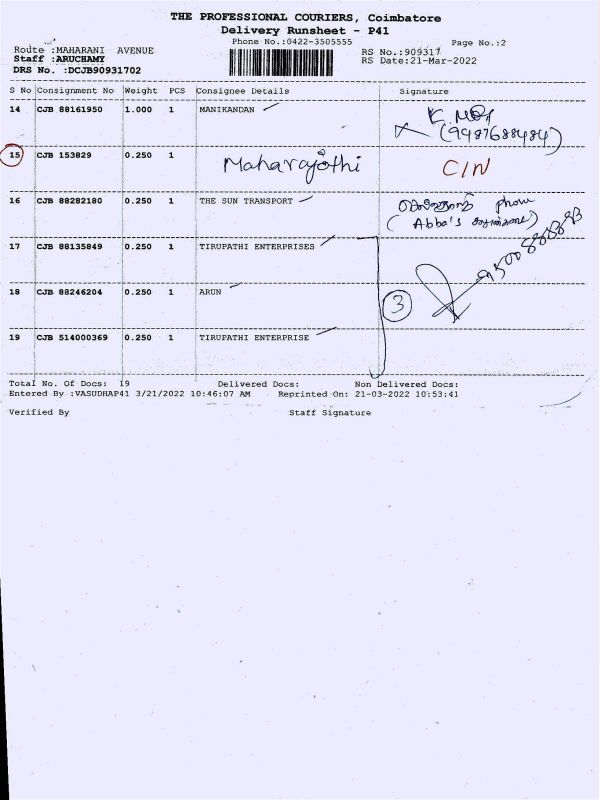 THE PROFESSIONAL COURIERS, Coimbatore
Delivery Runsheet - P41
Phone No.:0422-3505555
Page No.:2
Route :MAHARANI AVENUE
RS No.:909317
Staff :ARUCHAMY
RS Date:21-Mar-2022
DRS No. :DCJB90931702
S No Consignment No Weight PCS Consignee Details Signature
14 CJB 88161950 1.000 1 MANIKANDAN
(9487688484)
15 CJB 153829 0.250 1 Maharajothi C/N
16 CJB 88282180 0.250 1 THE SUN TRANSPORT phone
( Abba's
17 CJB 88135849 0.250 1 TIRUPATHI ENTERPRISES
18 CJB 88246204 0.250 1 ARUN
3
19 CJB 514000369 0.250 1 TIRUPATHI ENTERPRISE
Total No. Of Docs: 19 Delivered Docs: Non Delivered Docs:
Entered By :VASUDHAP41 3/21/2022 10:46:07 AM Reprinted On: 21-03-2022 10:53:41
Verified By Staff Signature